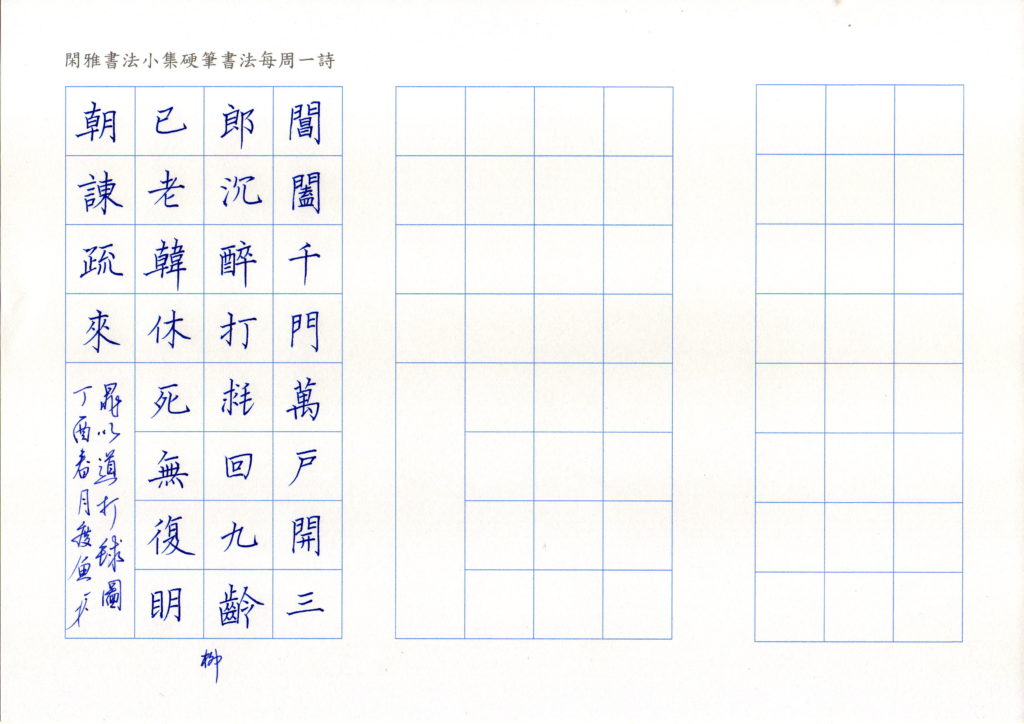 閑雅書法小集硬筆書法每周一詩
閶闔千門萬戶開三
郎沉醉打毬回九齡
已老韓休死無復眀
朝諫疏來
鼂以道打球圖
丁酉春月
柳